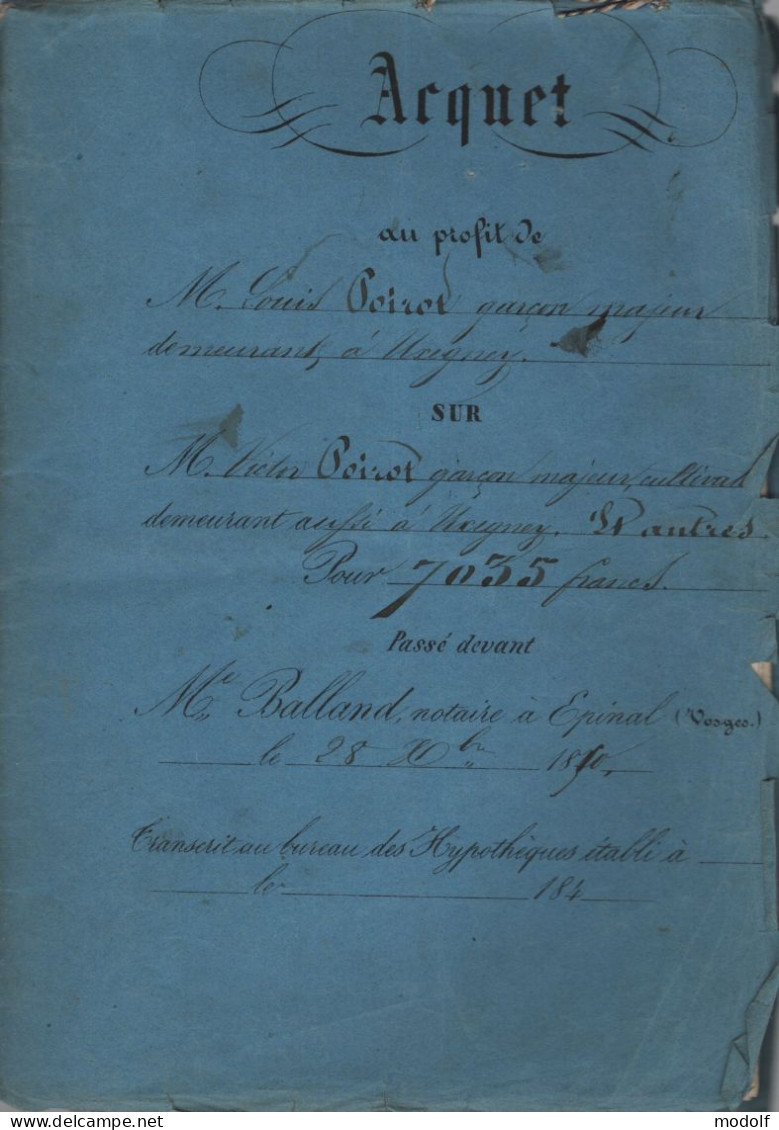 Acquet
au profit de
M. Louis Poirot garçon majeur
demeurant, à Uxegney.
SUR
M. Victor Poirot garçon majeur, cultivat
demeurant aussi à Uxegney. Et autres.
Pour 7035 francs.
Passé devant
Me Balland, notaire à Epinal (Vosges.)
le 28 Xbre 18
Transcrit au bureau des Hypothèques établi à
le 184
www.delcampe.net
modolf